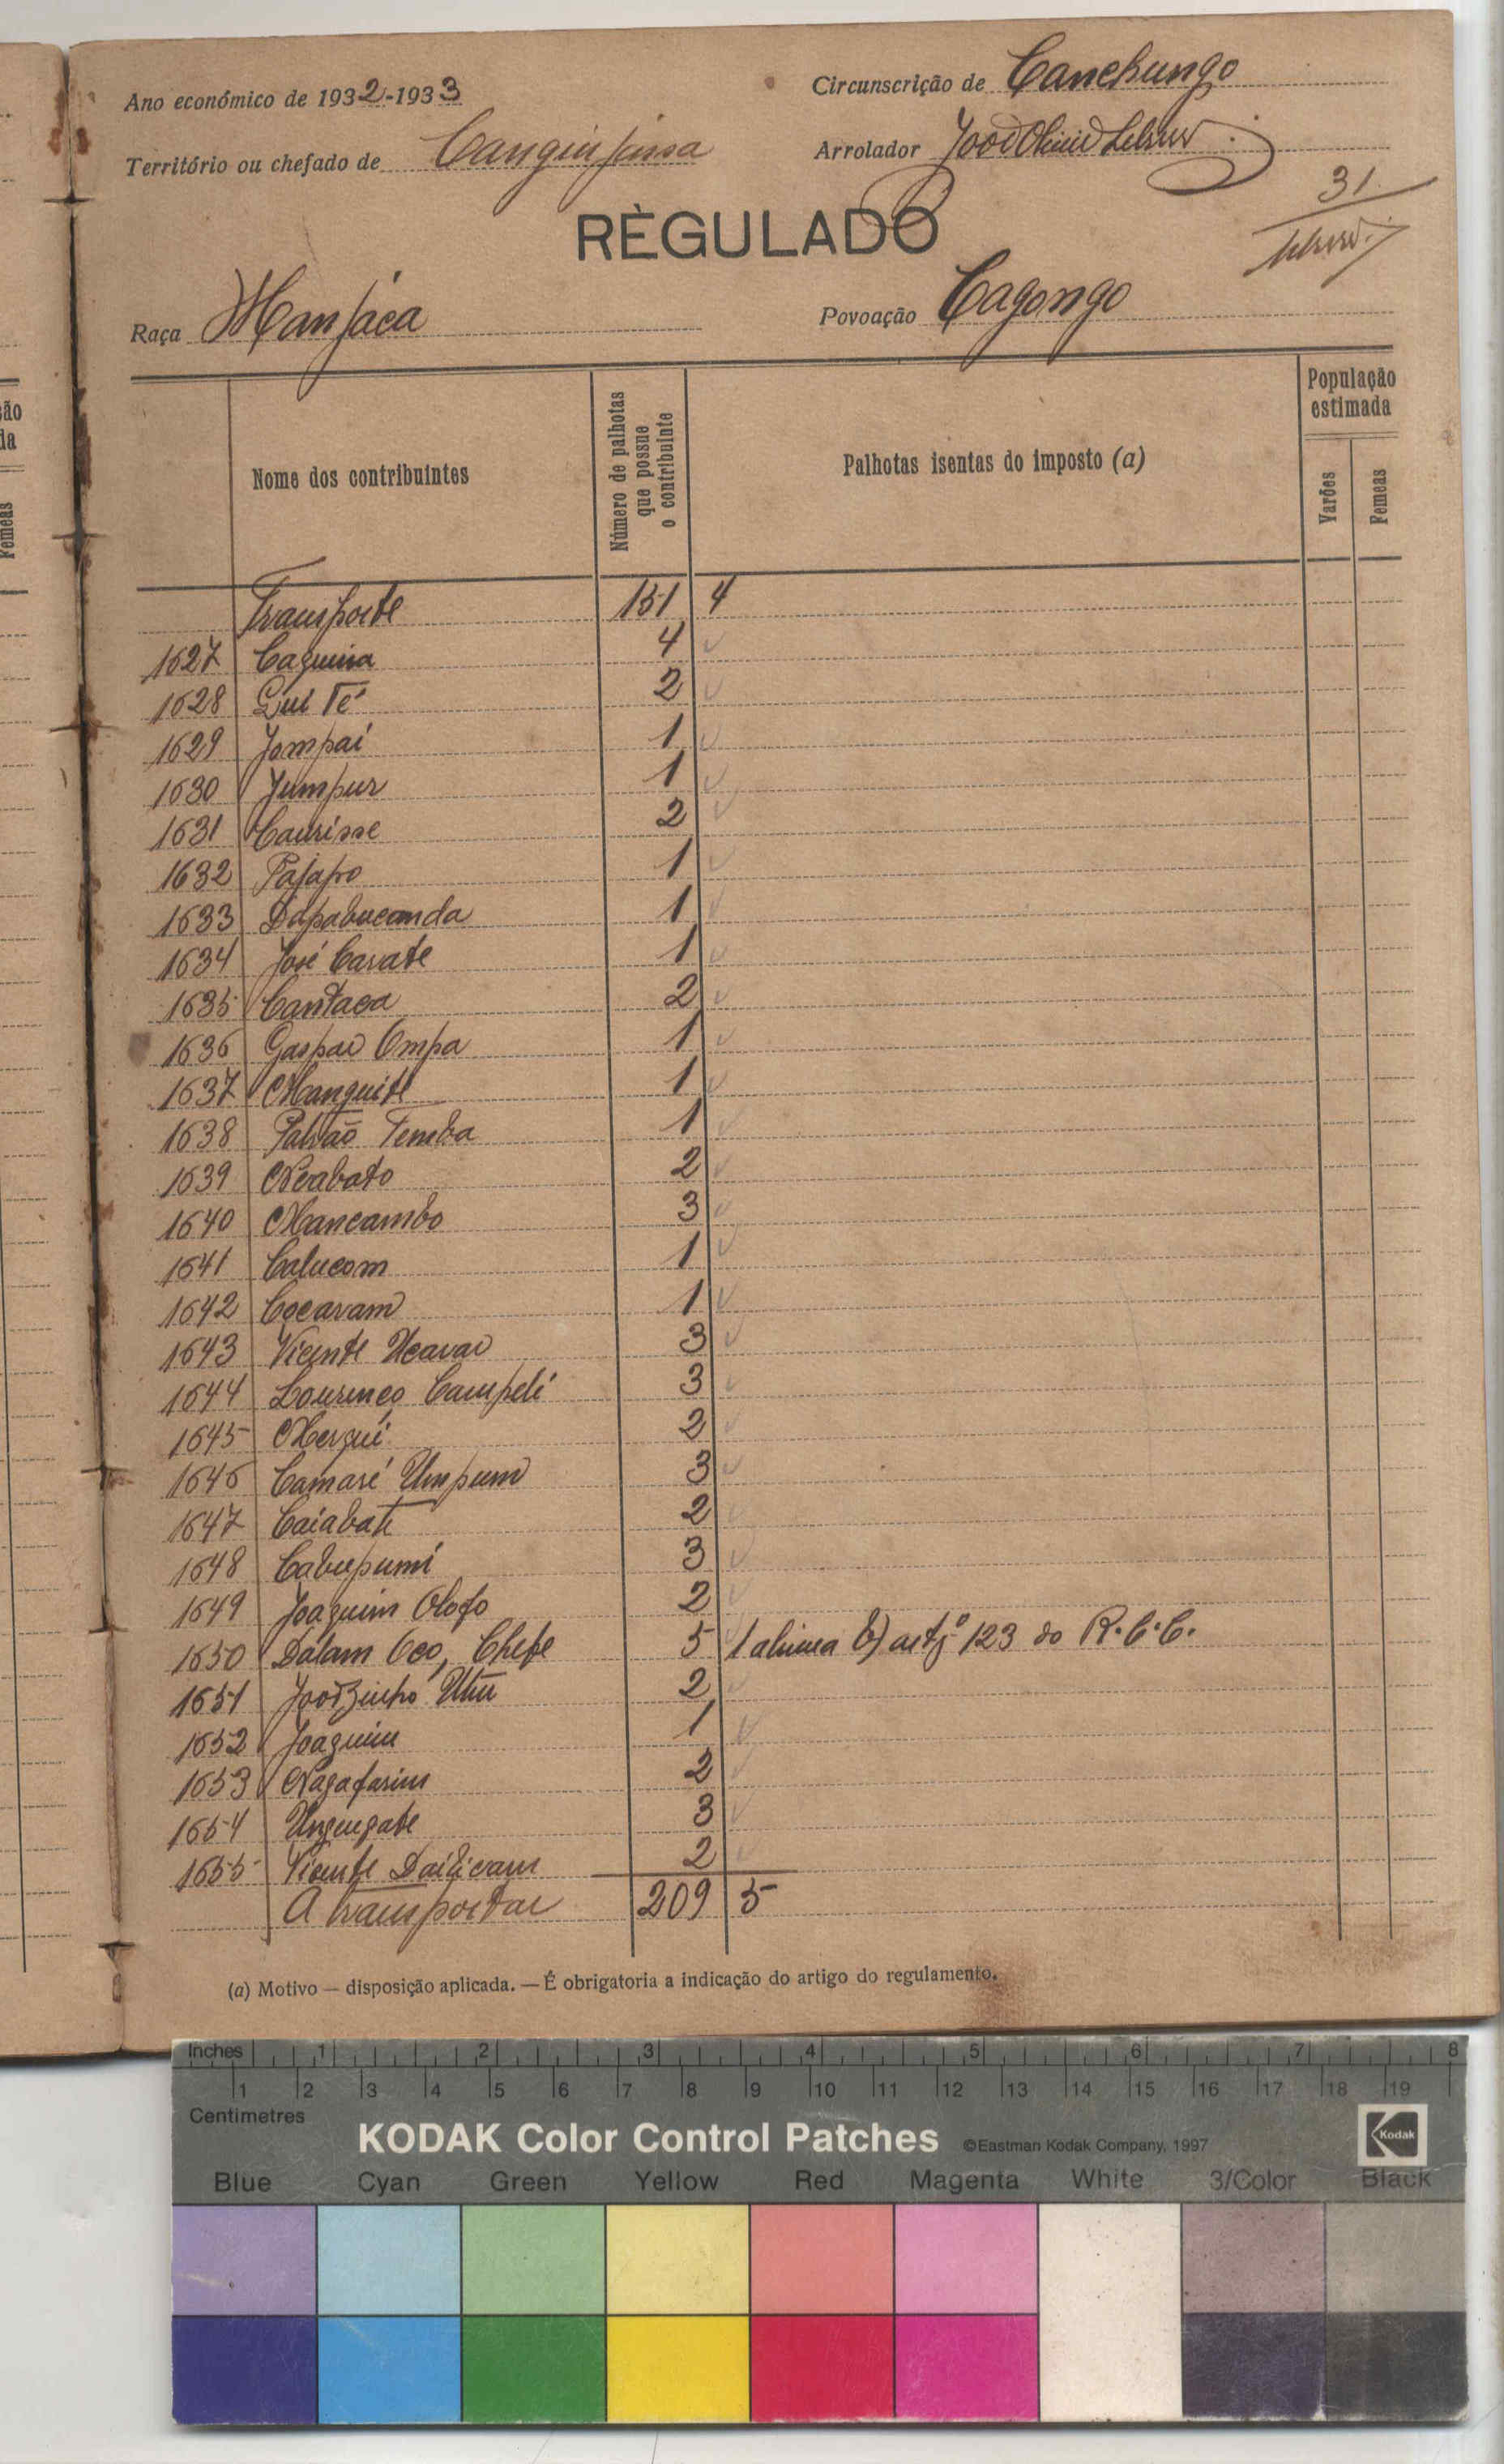 Ano económico de 1932-1933
Circunscrição de Canchungo
Território ou chefado de
Arrolador
31
RÈGULADO
Raça Manjaca
Povoação Cagongo
Nome dos contribuintes
Número de palhotas que possue o contribuinte
Palhotas isentas do imposto (a)
População estimada
Varões
Femeas
Transporte 151 4
1627 Caguina 4
1628 Qui Té 2
1629 Jompai 1
1630 Jumpur 1
1631 Caurisse 2
1632 Pajapo 1
1633 Dapabucanda 1
1634 José Cavate 1
1635 Cantaca 2
1636 Gaspar Ompa 1
1637 Manguite 1
1638 Temba 1
1639 Neabato 2
1640 Mancambo 3
1641 Calucom 1
1642 Cocaram 1
1643 Vicente Ucavar 3
1644 Lourenço Campelé 3
1645 Mergui 2
1646 Camaré Umpum 3
1647 Caiabate 2
1648 Cabupumi 3
1649 Joaquim Olofo 2
1650 Dalam Oco, Chefe 5 1 alinea b) artº 123 do R.C.C.
1651 2
1652 Joaquim 1
1653 Nagafarim 2
1654 Ungugate 3
1655 Vicente 2
A transportar 209 5
(a) Motivo — disposição aplicada. — É obrigatoria a indicação do artigo do regulamento.
Inches 1 2 3 4 5 6 7 8
1 2 3 4 5 6 7 8 9 10 11 12 13 14 15 16 17 18 19
Centimetres
KODAK Color Control Patches ©Eastman Kodak Company, 1997 Kodak
Blue Cyan Green Yellow Red Magenta White 3/Color Black